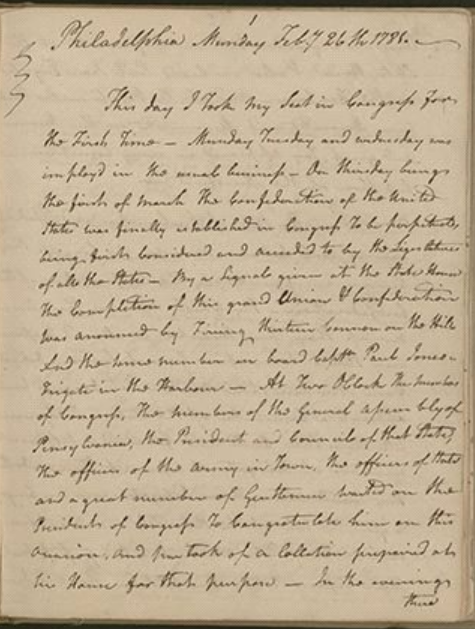 Philadelphia Munday Feby 26th 1781. —
This day I Took my Seat in Congress for
the First Time — Munday Tuesday and wednesday was
imployd in the usual buisness — On thirsday being
the first of march The Confederation of the United
States was finally established in Congress To be perpetual,
being first Considered and acceeded to by the Legislatures
of all the States — By a Signale given at the State House
The Completion of this grand Union & Confederation
was anounced by Firing thirteen Cannon on the Hill
And the same number on board Capt. Paul Jones
Frigate in the Harbour — At Two OClock the members
of Congress, The members of the General Assembly of
Pensylvania, the President and Council of that State,
The officers of the army in Town, the officers of State
and a great number of Gentlemen waited on the
Presidents of Congress To Congratulate him on this
occasion, and partook of a Collation prepaired at
his House for that purpose — In the evening
there